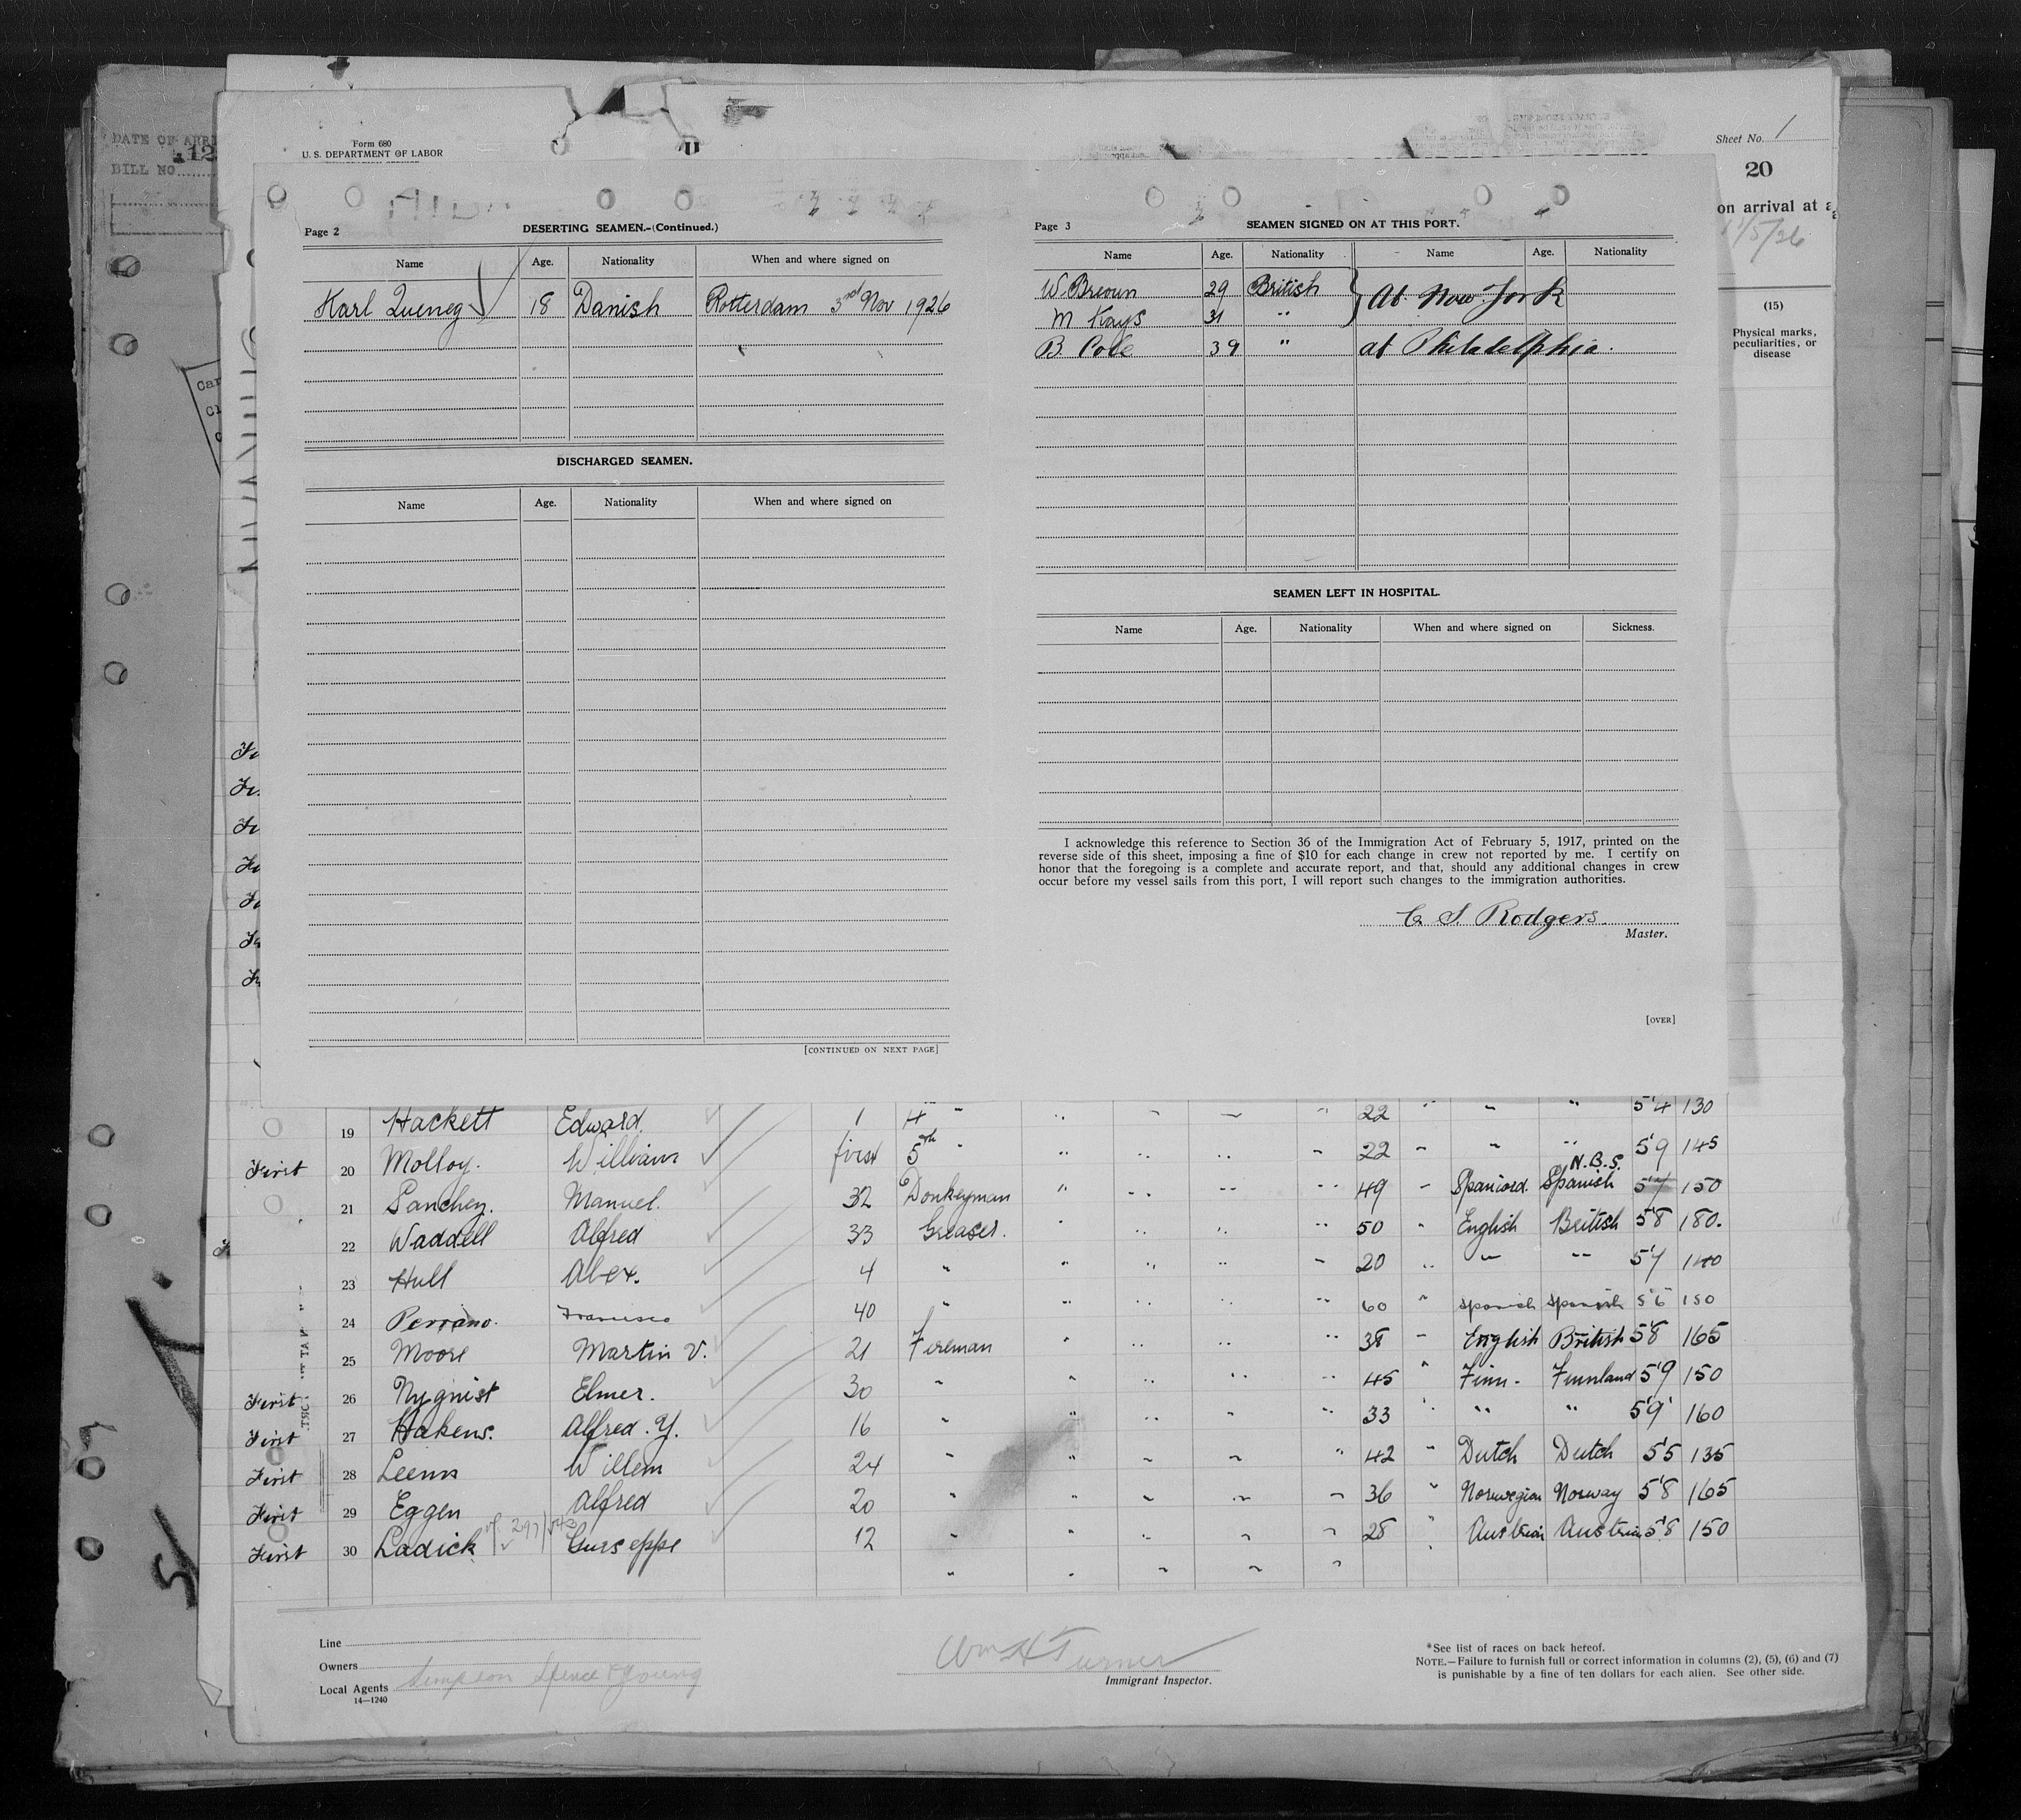 DATE OF ARR
BILL NO
Form 680
U. S. DEPARTMENT OF LABOR
Sheet No. 1
20
on arrival at a
(15)
Physical marks,
peculiarities, or
disease
Page 2 DESERTING SEAMEN.-(Continued.)
Name Age. Nationality When and where signed on
Karl 18 Danish Rotterdam 3rd Nov 1926
DISCHARGED SEAMEN.
Name Age. Nationality When and where signed on
[CONTINUED ON NEXT PAGE]
Page 3 SEAMEN SIGNED ON AT THIS PORT.
Name Age. Nationality Name Age. Nationality
W. Brown 29 British } At New York
M Kays 31 "
B. Cole 39 " at Philadelphia.
SEAMEN LEFT IN HOSPITAL.
Name Age. Nationality When and where signed on Sickness.
I acknowledge this reference to Section 36 of the Immigration Act of February 5, 1917, printed on the
reverse side of this sheet, imposing a fine of $10 for each change in crew not reported by me. I certify on
honor that the foregoing is a complete and accurate report, and that, should any additional changes in crew
occur before my vessel sails from this port, I will report such changes to the immigration authorities.
C. S. Rodgers
Master.
[OVER]
19 Hackett Edward. 1 4 " 22 " " " 5'4 130
First 20 Molloy. William first 5th " 22 " " " 5'9 145
N.B.S.
21 Sanchez. Manuel. 32 Donkeyman " 49 " Spaniard. Spanish 5'7 150
22 Waddell Alfred 33 Greaser. " 50 " English British 5'8 180.
23 Hull Alex. 4 " 20 " " " 5'7 140
24 Perrano. Francisco 40 " 60 " Spanish Spanish 5'6 150
25 Moore Martin V. 21 Fireman " 38 " English British 5'8 165
First 26 Nyqnist Elmer. 30 " 45 " Finn. Finnland 5'9 150
First 27 Hakens. Alfred. Y. 16 " 33 " " " 5'9 160
First 28 Leems Willem 24 " 42 " Dutch Dutch 5'5 135
First 29 Eggen Alfred 20 " 36 " Norwegian Norway 5'8 165
First 30 Ladick Guiseppe 12 " 28 " Austrian Austria 5'8 150
Line
Owners
Local Agents Simpson Spence & Young
14—1240
Wm H Turner
Immigrant Inspector.
*See list of races on back hereof.
NOTE.—Failure to furnish full or correct information in columns (2), (5), (6) and (7)
is punishable by a fine of ten dollars for each alien. See other side.